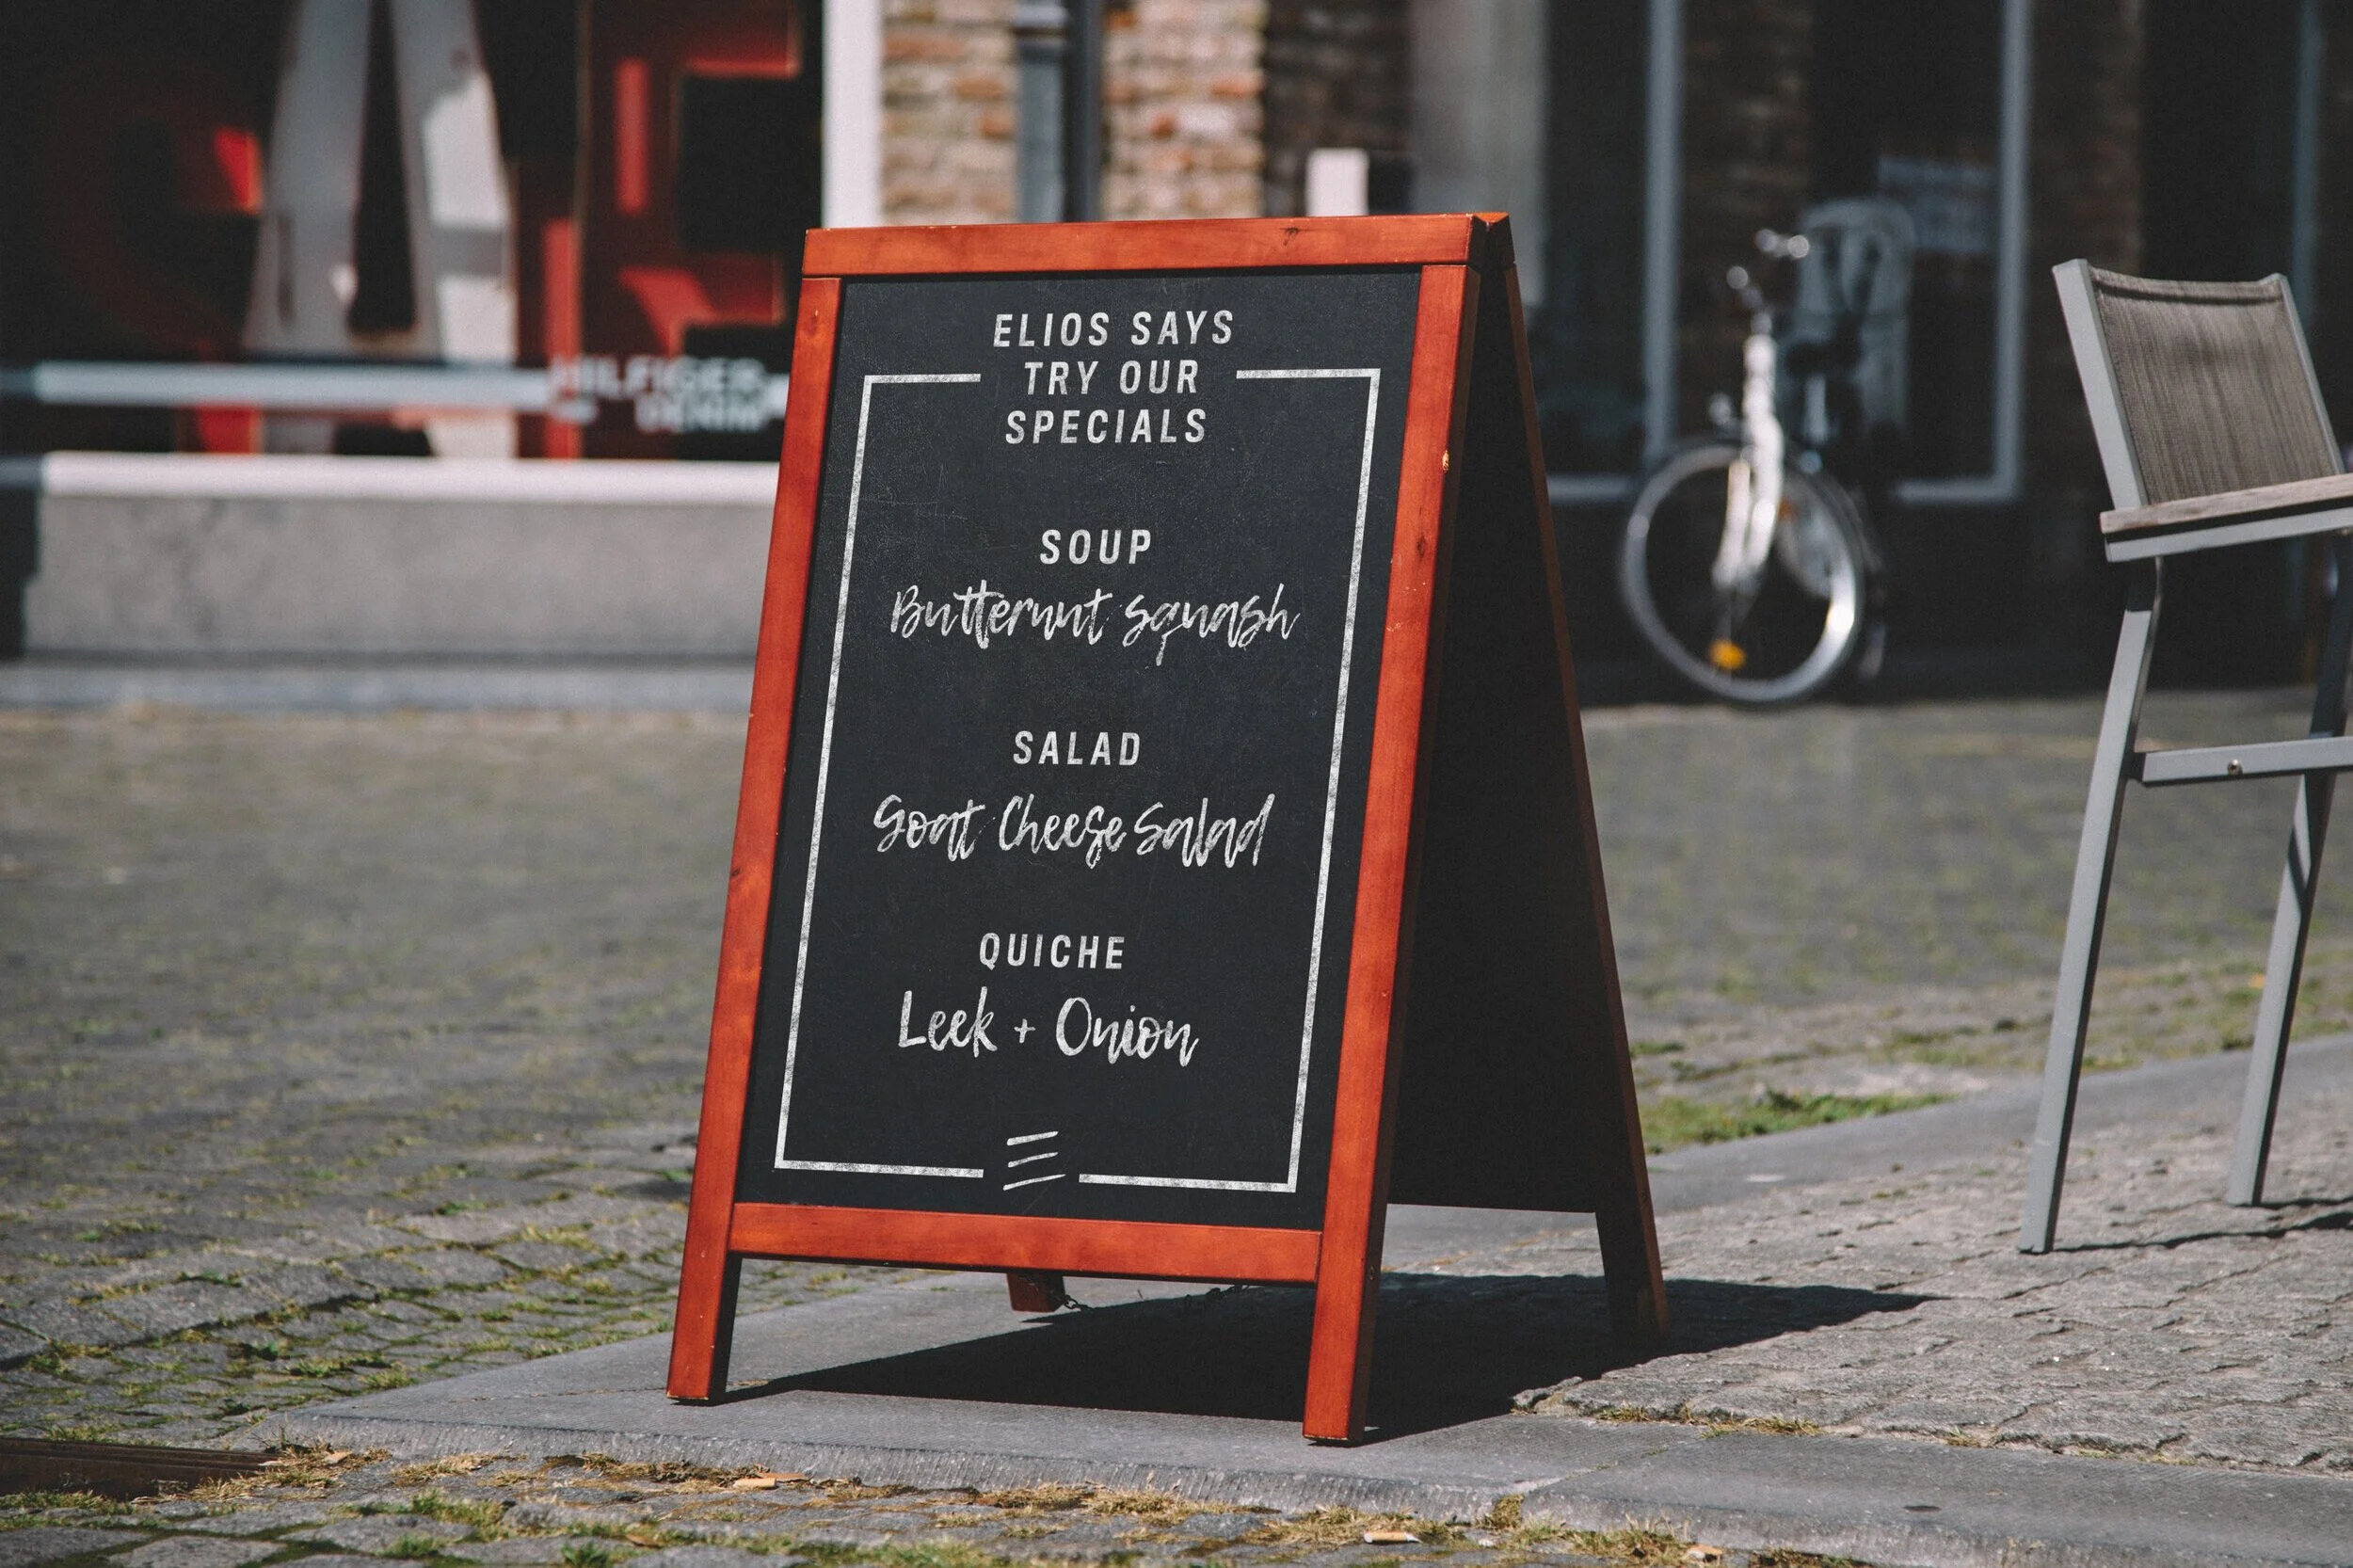 ELIOS SAYS
TRY OUR
SPECIALS
SOUP
Butternut squash
SALAD
Goat Cheese Salad
QUICHE
Leek + Onion
SALE
HILFIGER
DENIM